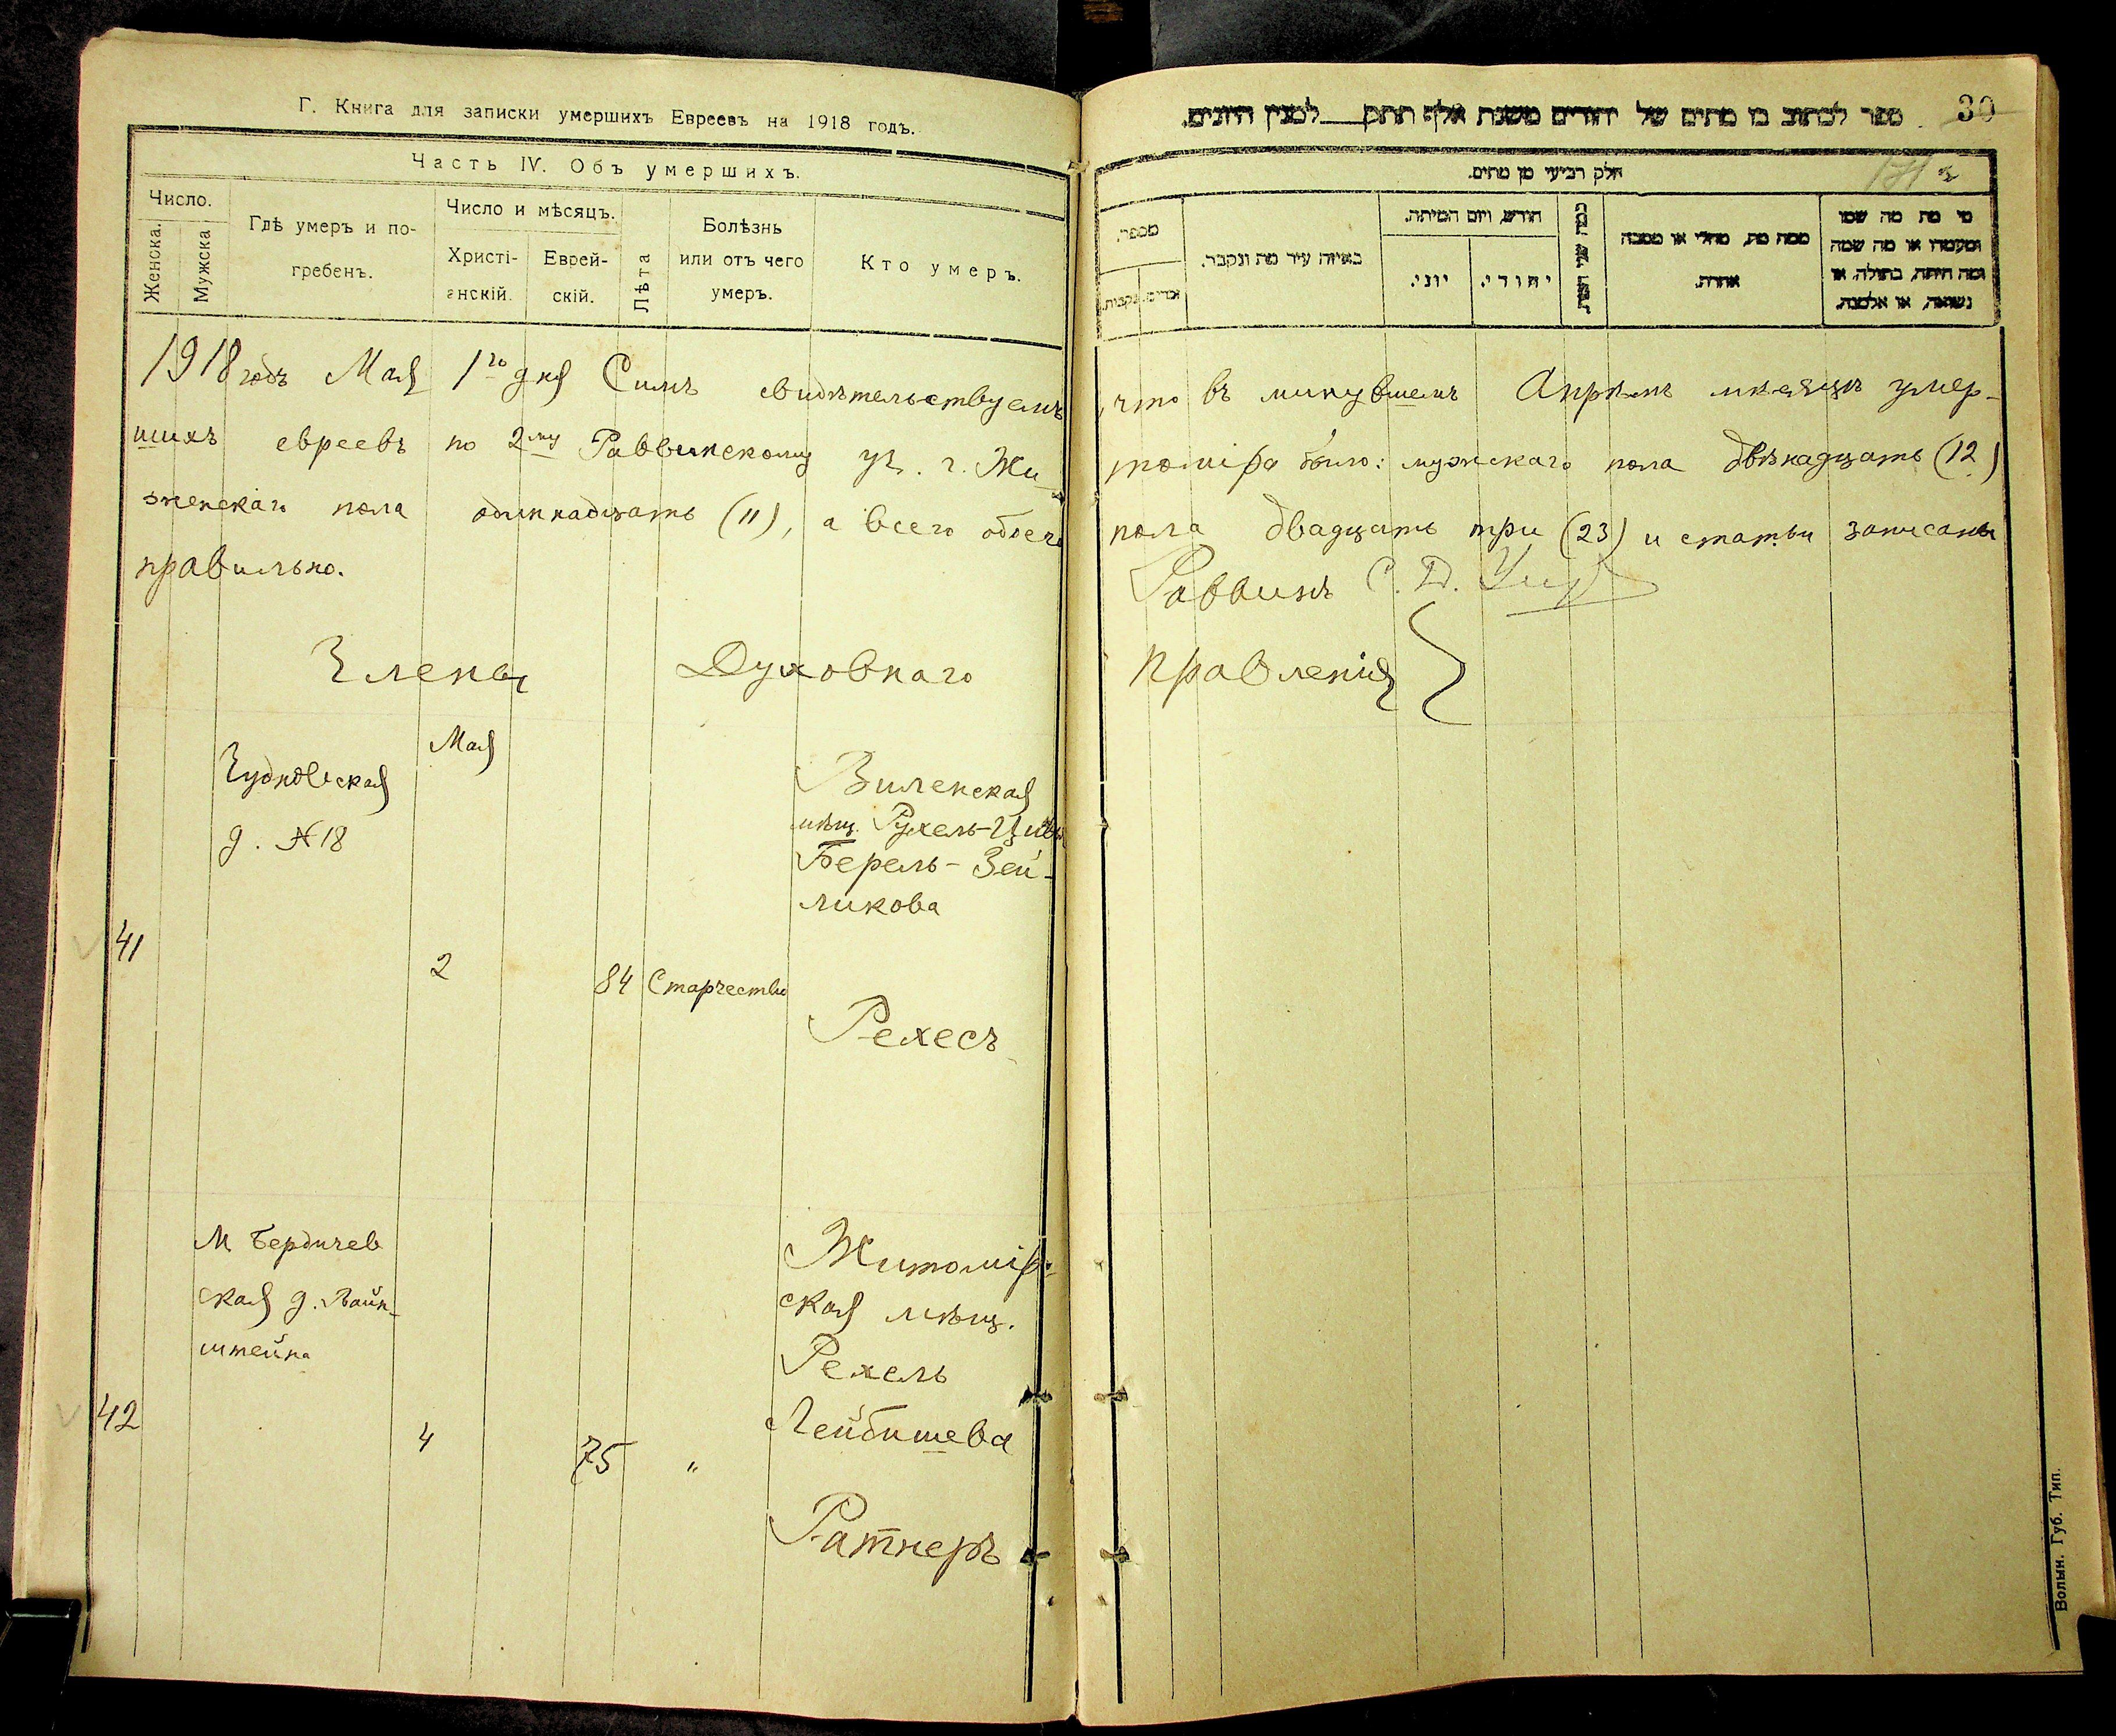 Г. Книга для записки умершихъ Евреевъ на 1918 годъ.
Часть IV. Объ умершихъ.
Число.
Женска.
Мужска
Гдѣ умеръ и по-
гребенъ.
Число и мѣсяцъ.
Христі-
анскій.
Еврей-
скій.
Лѣта
Болѣзнь
или отъ чего
умеръ.
Кто умеръ.
1918 годъ Мая 1го дня Симъ свидѣтельствуемъ
шихъ евреевъ по 2му Раввинскому уч. г. Жи-
женскаго пола одиннадцать (11), а всего обоего
правильно.
Члены Духовнаго
Мая
Чудновская
д. № 18
Виленская
мѣщ. Рухель-Цивья
Берель-Зей-
ликова
41
2
84
Старчество
Рехесъ
М Бердичев
ская д. Вайн-
штейна
Житомір-
ская мѣщ.
Рехель
Лейбишева
42
4
75
"
Ратнеръ
ספר לכתוב בו מתים של יהודים משנת אלף תתק למנין היונים.
30
חלק רביעי מן מתים.
מספר.
זכרים.
נקבות.
באיזה עיר מת ונקבר.
חודש, ויום המיתה.
יוני.
יהודי.
כמה שני המת.
ממה מת, מחלי או מסבה
אחרת.
מי מת מה שמו
ומעמדו או מה שמה
ומה היתה, בתולה, או
נשואה, או אלמנה.
что въ минувшемъ Апрѣлѣ мѣсяцѣ умер-
томіра было: мужскаго пола двѣнадцать (12)
пола двадцать три (23) и статьи записаны
Раввинъ С. Д.
Правленія
Волын. Губ. Тип.